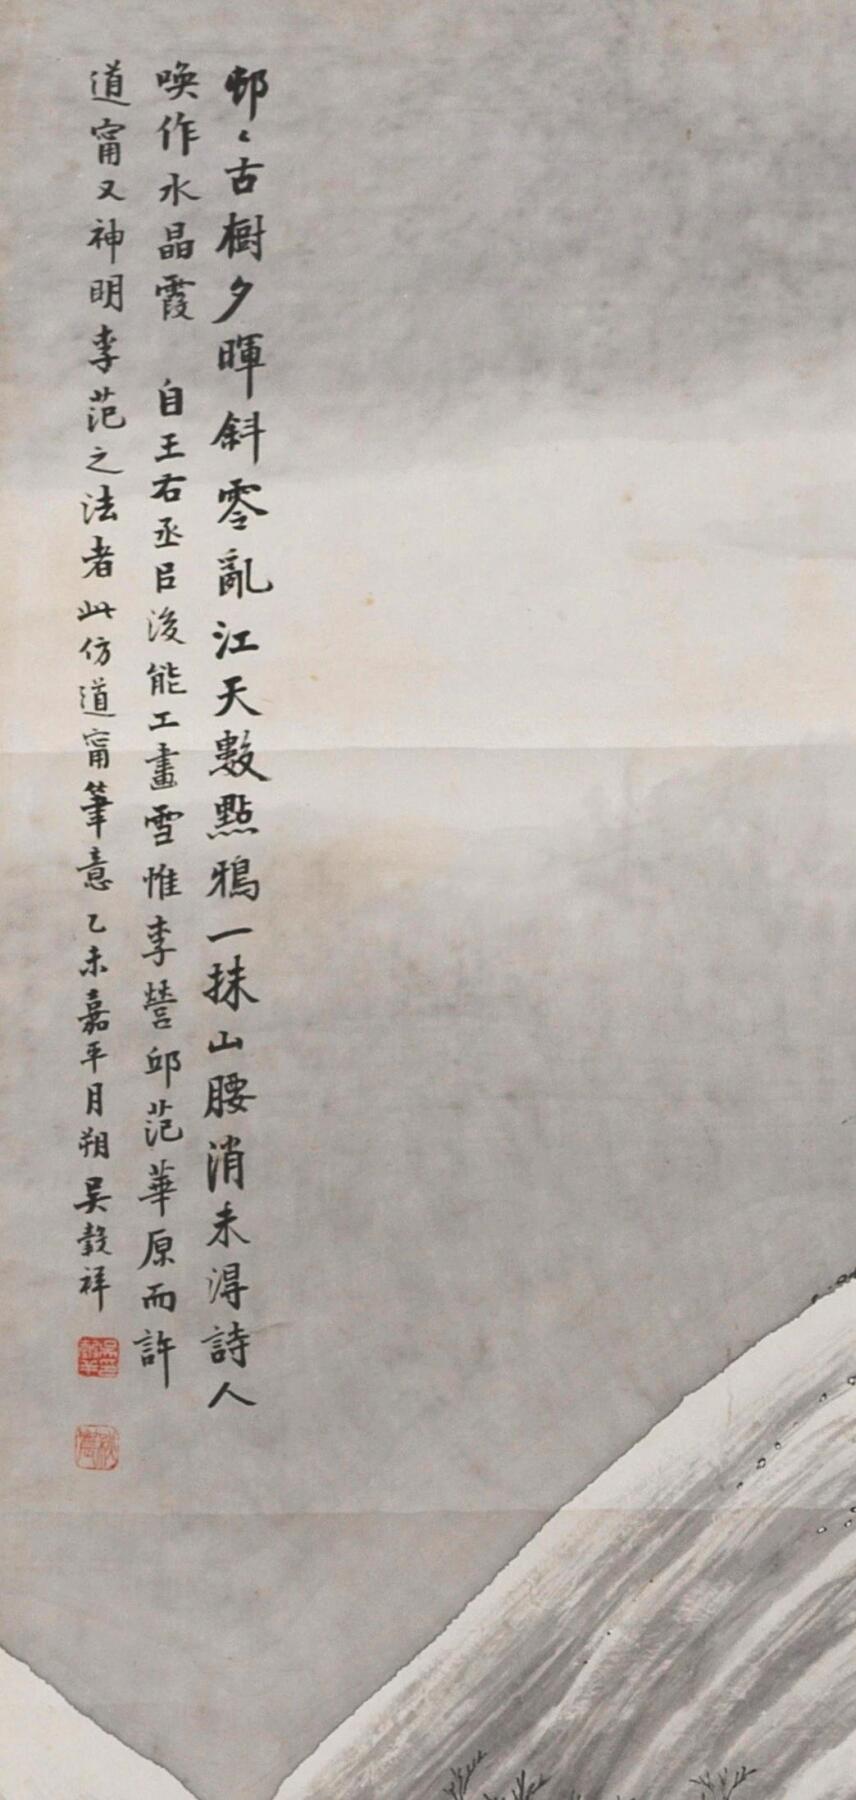 邨〻古樹夕暉斜零亂江天數點鴉一抹山腰消未得詩人
喚作水晶霞　自王右丞㠯後能工畫雪惟李營邱范華原而許
道甯又神明李范之法者此仿道甯筆意乙未嘉平月朔吳穀祥